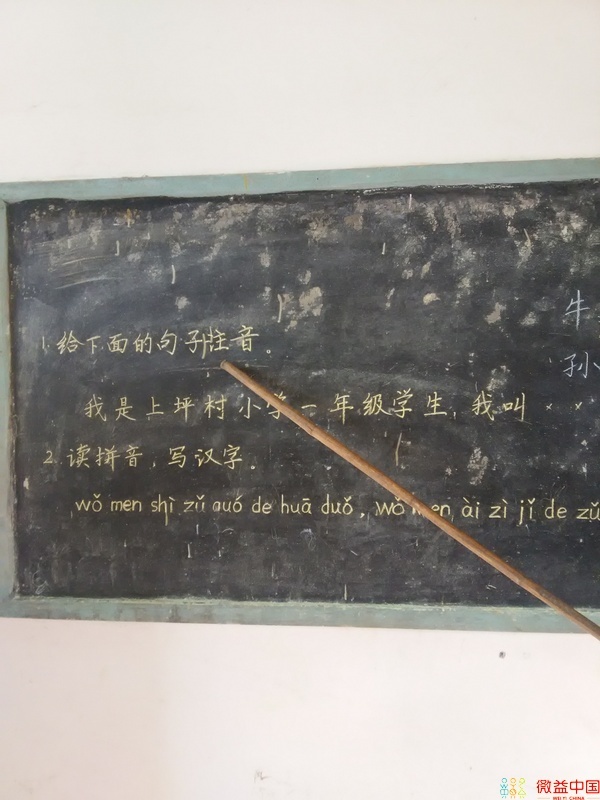 牛
孙
1.给下面的句子注音。
我是上坪村小学一年级学生,我叫××
2.读拼音,写汉字。
wǒ men shì zǔ guó de huā duǒ, wǒ men ài zì jǐ de zǔ
微益中国
WEI YI CHINA